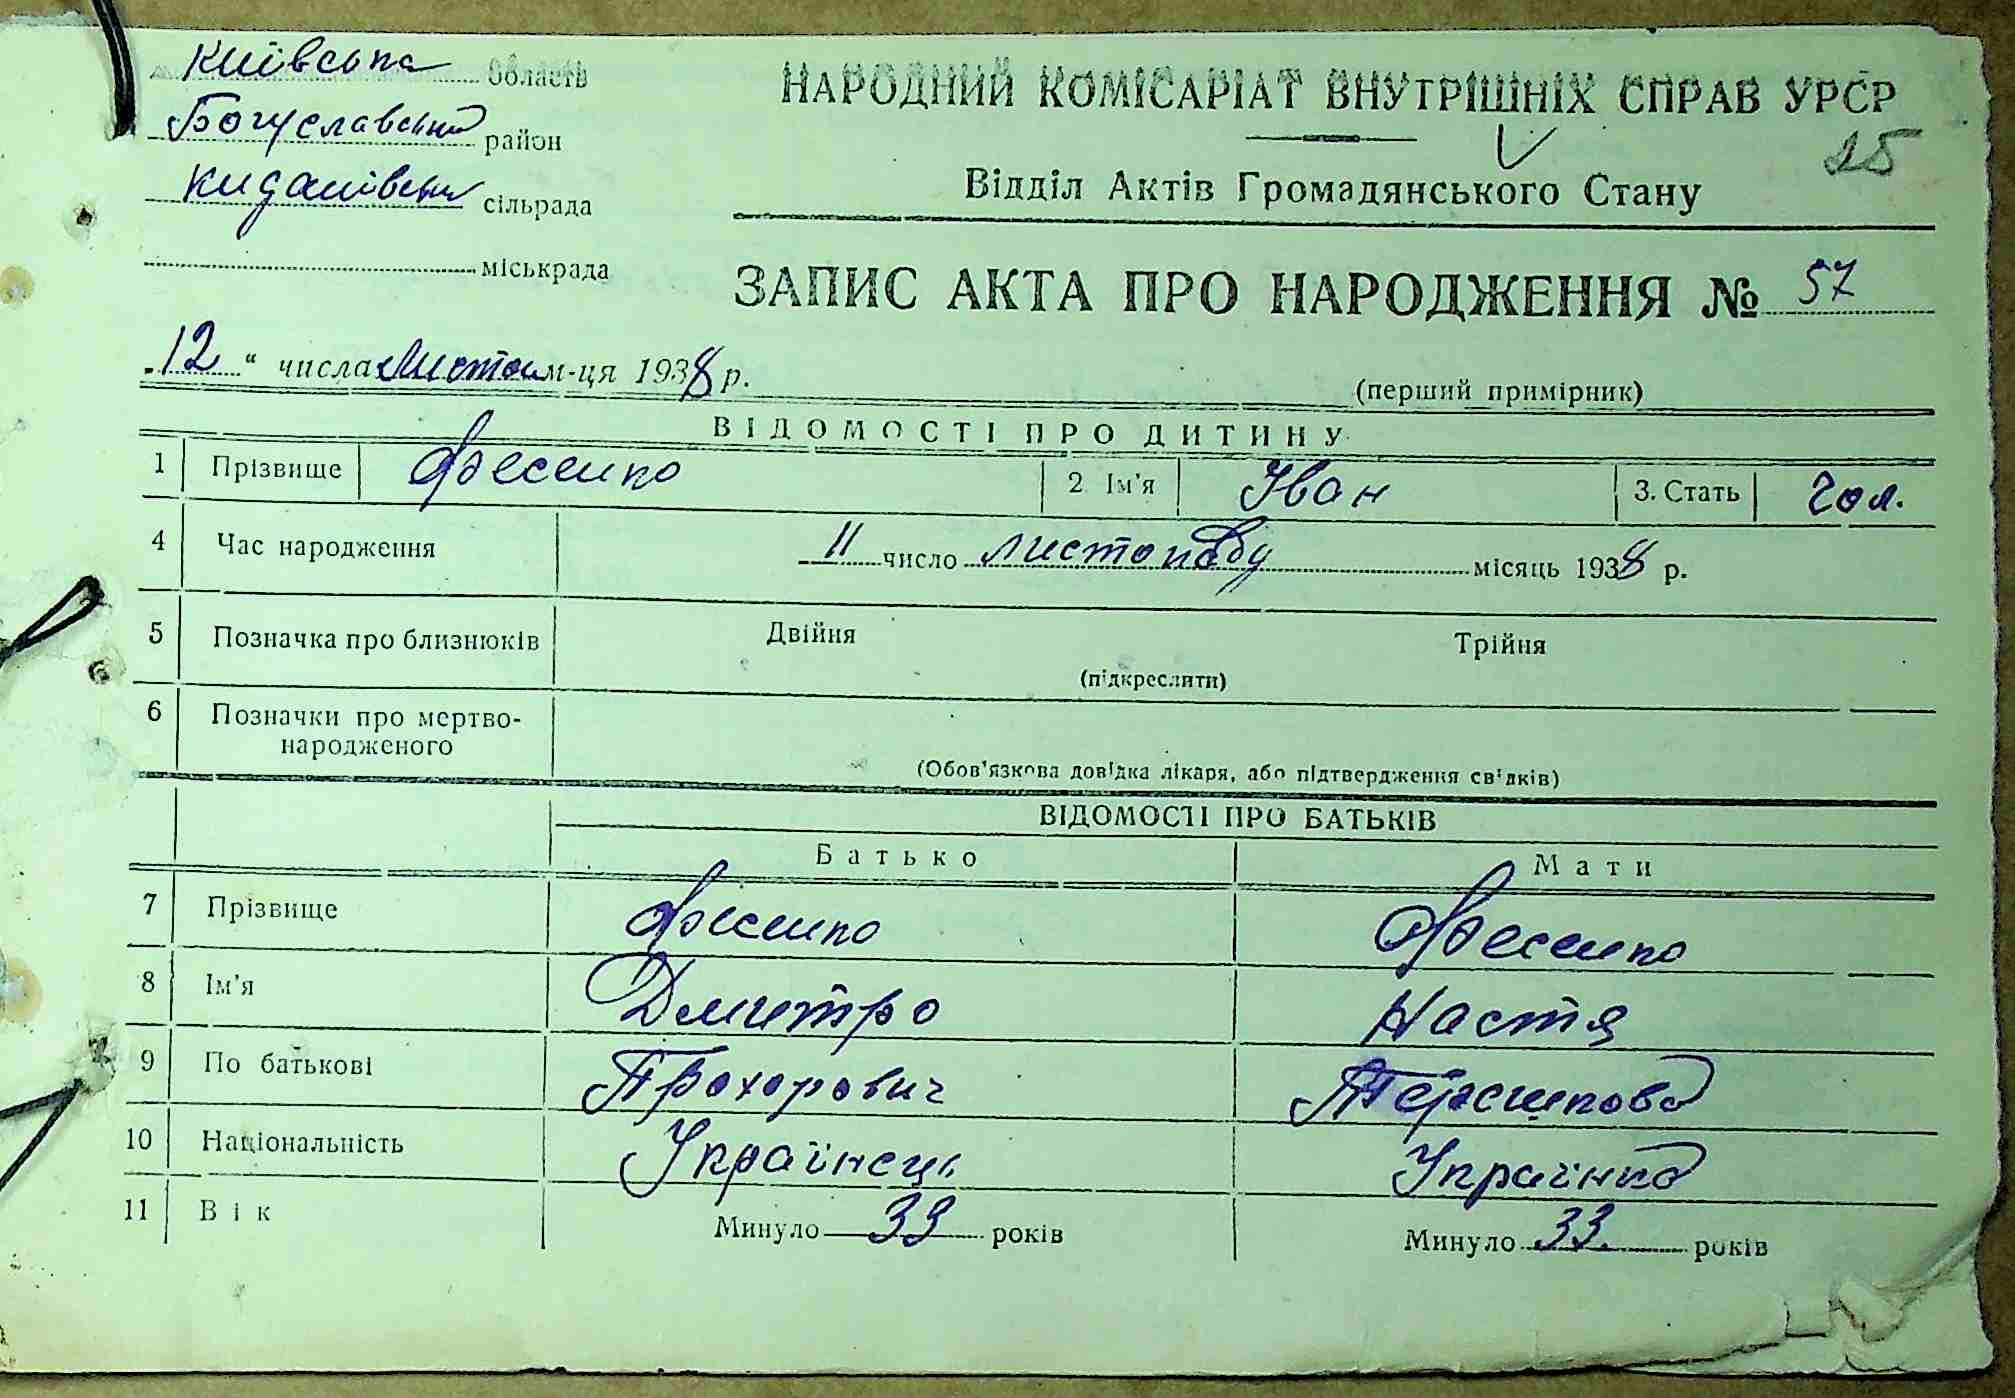 Київська область
Богуславський район
Киданівська сільрада
міськрада
НАРОДНИЙ КОМІСАРІАТ ВНУТРІШНІХ СПРАВ УРСР
25
Відділ Актів Громадянського Стану
ЗАПИС АКТА ПРО НАРОДЖЕННЯ № 57
„12“ числа листоп м-ця 1938 р.
(перший примірник)
ВІДОМОСТІ ПРО ДИТИНУ
1 Прізвище Фесенко 2 Ім'я Іван 3. Стать чол.
4 Час народження 11 число листопаду місяць 1938 р.
5 Позначка про близнюків Двійня Трійня
(підкреслити)
6 Позначки про мертво-
народженого
(Обов'язкова довідка лікаря, або підтвердження свідків)
ВІДОМОСТІ ПРО БАТЬКІВ
Батько Мати
7 Прізвище Фесенко Фесенко
8 Ім'я Дмитро Настя
9 По батькові Прохорович
10 Національність Українець Українка
11 Вік Минуло 39 років Минуло 33 років